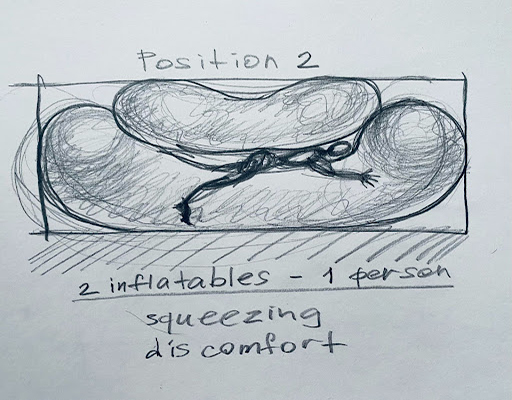 Position 2
2 inflatables - 1 person
squeezing
discomfort